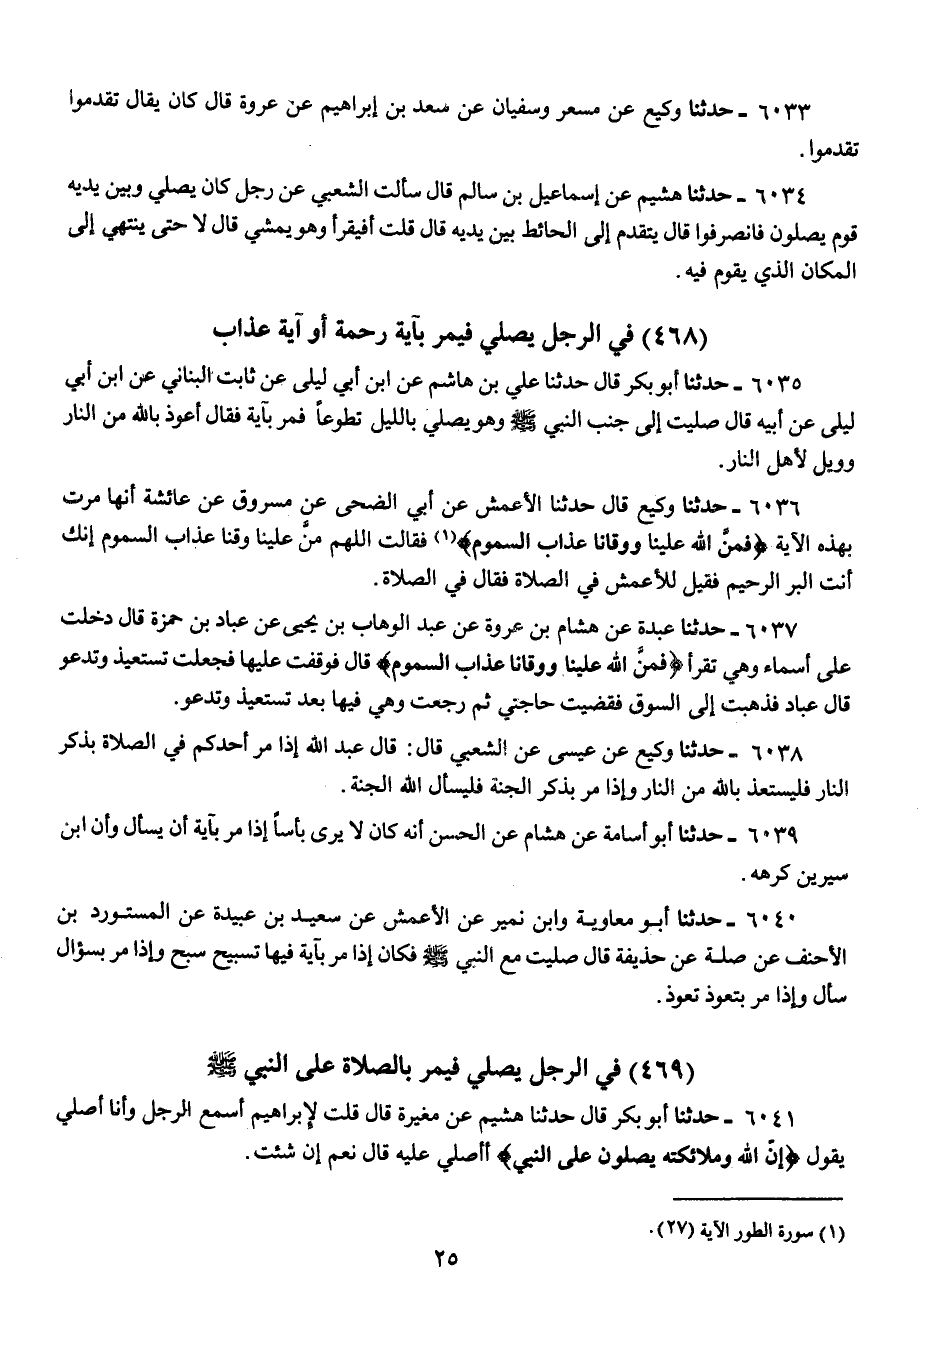 ٦٠٣٣ ـ حدثنا وكيع عن مسعر وسفيان عن سعد بن إبراهيم عن عروة قال كان يقال تقدموا
تقدموا.
٦٠٣٤ ـ حدثنا هشيم عن إسماعيل بن سالم قال سألت الشعبي عن رجل كان يصلي وبين يديه
قوم يصلون فانصرفوا قال يتقدم إلى الحائط بين يديه قال قلت أفيقرأ وهو يمشي قال لا حتى ينتهي إلى
المكان الذي يقوم فيه.
(٤٦٨) في الرجل يصلي فيمر بآية رحمة أو آية عذاب
٦٠٣٥ ـ حدثنا أبو بكر قال حدثنا علي بن هاشم عن ابن أبي ليلى عن ثابت البناني عن ابن أبي
ليلى عن أبيه قال صليت إلى جنب النبي ﷺ وهو يصلي بالليل تطوعاً فمر بآية فقال أعوذ بالله من النار
وويل لأهل النار.
٦٠٣٦ ـ حدثنا وكيع قال حدثنا الأعمش عن أبي الضحى عن مسروق عن عائشة أنها مرت
بهذه الآية ﴿فمنَّ الله علينا ووقانا عذاب السموم﴾(١) فقالت اللهم منَّ علينا وقنا عذاب السموم إنك
أنت البر الرحيم فقيل للأعمش في الصلاة فقال في الصلاة.
٦٠٣٧ ـ حدثنا عبدة عن هشام بن عروة عن عبد الوهاب بن يحيى عن عباد بن حمزة قال دخلت
على أسماء وهي تقرأ ﴿فمنَّ الله علينا ووقانا عذاب السموم﴾ قال فوقفت عليها فجعلت تستعيذ وتدعو
قال عباد فذهبت إلى السوق فقضيت حاجتي ثم رجعت وهي فيها بعد تستعيذ وتدعو.
٦٠٣٨ ـ حدثنا وكيع عن عيسى عن الشعبي قال: قال عبد الله إذا مر أحدكم في الصلاة بذكر
النار فليستعذ بالله من النار وإذا مر بذكر الجنة فليسأل الله الجنة.
٦٠٣٩ ـ حدثنا أبو أسامة عن هشام عن الحسن أنه كان لا يرى بأساً إذا مر بآية أن يسأل وأن ابن
سيرين كرهه.
٦٠٤٠ ـ حدثنا أبو معاوية وابن نمير عن الأعمش عن سعيد بن عبيدة عن المستورد بن
الأحنف عن صلة عن حذيفة قال صليت مع النبي ﷺ فكان إذا مر بآية فيها تسبيح سبح وإذا مر بسؤال
سأل وإذا مر بتعوذ تعوذ.
(٤٦٩) في الرجل يصلي فيمر بالصلاة على النبي ﷺ
٦٠٤١ ـ حدثنا أبو بكر قال حدثنا هشيم عن مغيرة قال قلت لإبراهيم أسمع الرجل وأنا أصلي
يقول ﴿إنّ الله وملائكته يصلون على النبي﴾ أأصلي عليه قال نعم إن شئت.
(١) سورة الطور الآية (٢٧).
٢٥